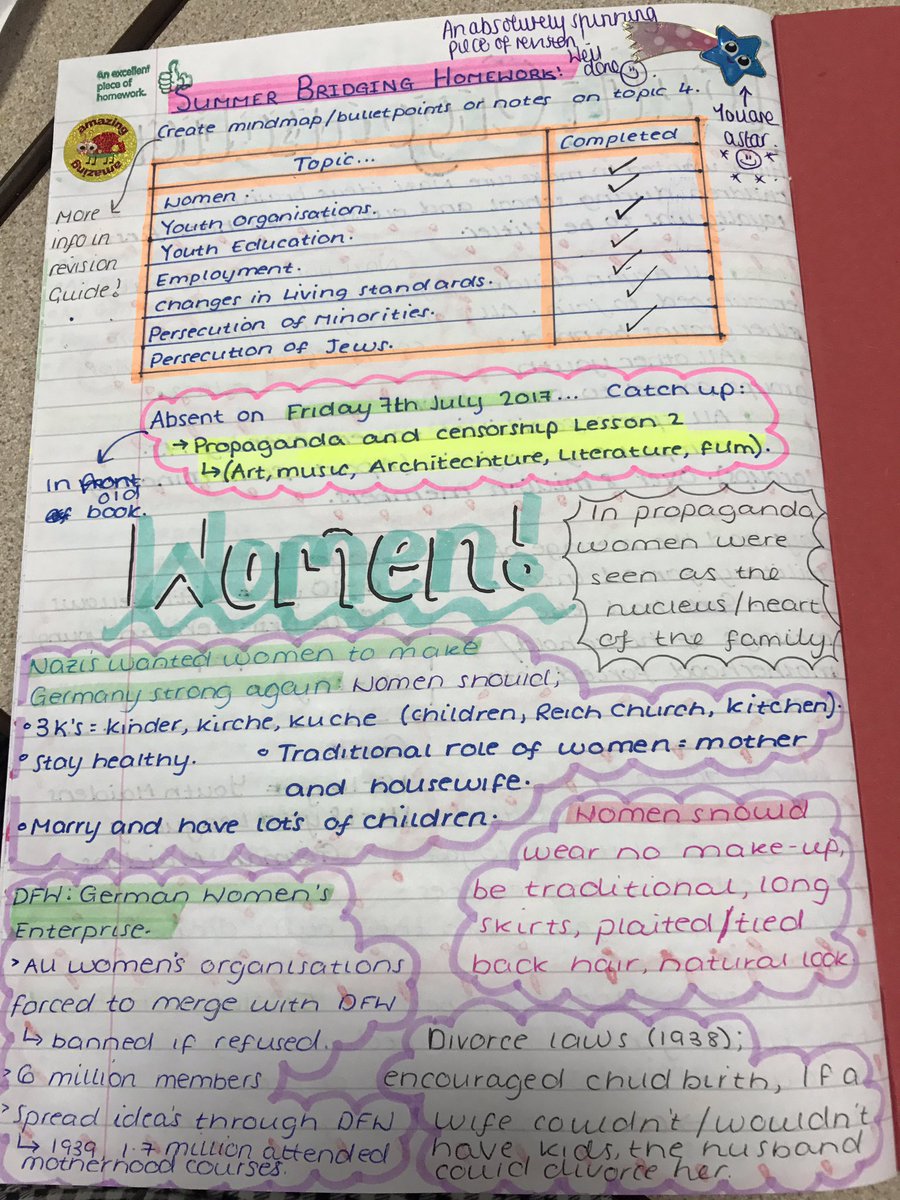 An absolutely spinning
piece of revision
Well
done
an excellent
piece of
homework.
SUMMER BRIDGING HOMEWORK:
Create mindmap/bulletpoints or notes on topic 4.
You are
a star.
amazing
amazing
More
info in
revision
Guide!
Topic... Completed
Women. ✓
Youth Organisations. ✓
Youth Education. ✓
Employment. ✓
Changes in Living standards. ✓
Persecution of Minorities. ✓
Persecution of Jews. ✓
Absent on Friday 7th July 2017... Catch up:
→ Propaganda and censorship Lesson 2
↳ (Art, music, Architechture, Literature, film).
In front
old
of book.
Women!
In propaganda
women were
seen as the
nucleus/heart
of the family
Nazi's wanted women to make
Germany strong again: Women should;
• 3K's = kinder, kirche, kuche (children, Reich Church, kitchen).
• Stay healthy. • Traditional role of women = mother
and housewife.
• Marry and have lot's of children.
Women should
wear no make-up,
be traditional, long
skirts, plaited/tied
back hair, natural look
DFW: German Women's
Enterprise.
> All women's organisations
forced to merge with DFW
↳ banned if refused.
> 6 million members
> Spread idea's through DFW
↳ 1939 1.7 million attended
motherhood courses.
Divorce laws (1938);
encouraged child birth, If a
wife couldn't/wouldn't
have kids, the husband
could divorce her.